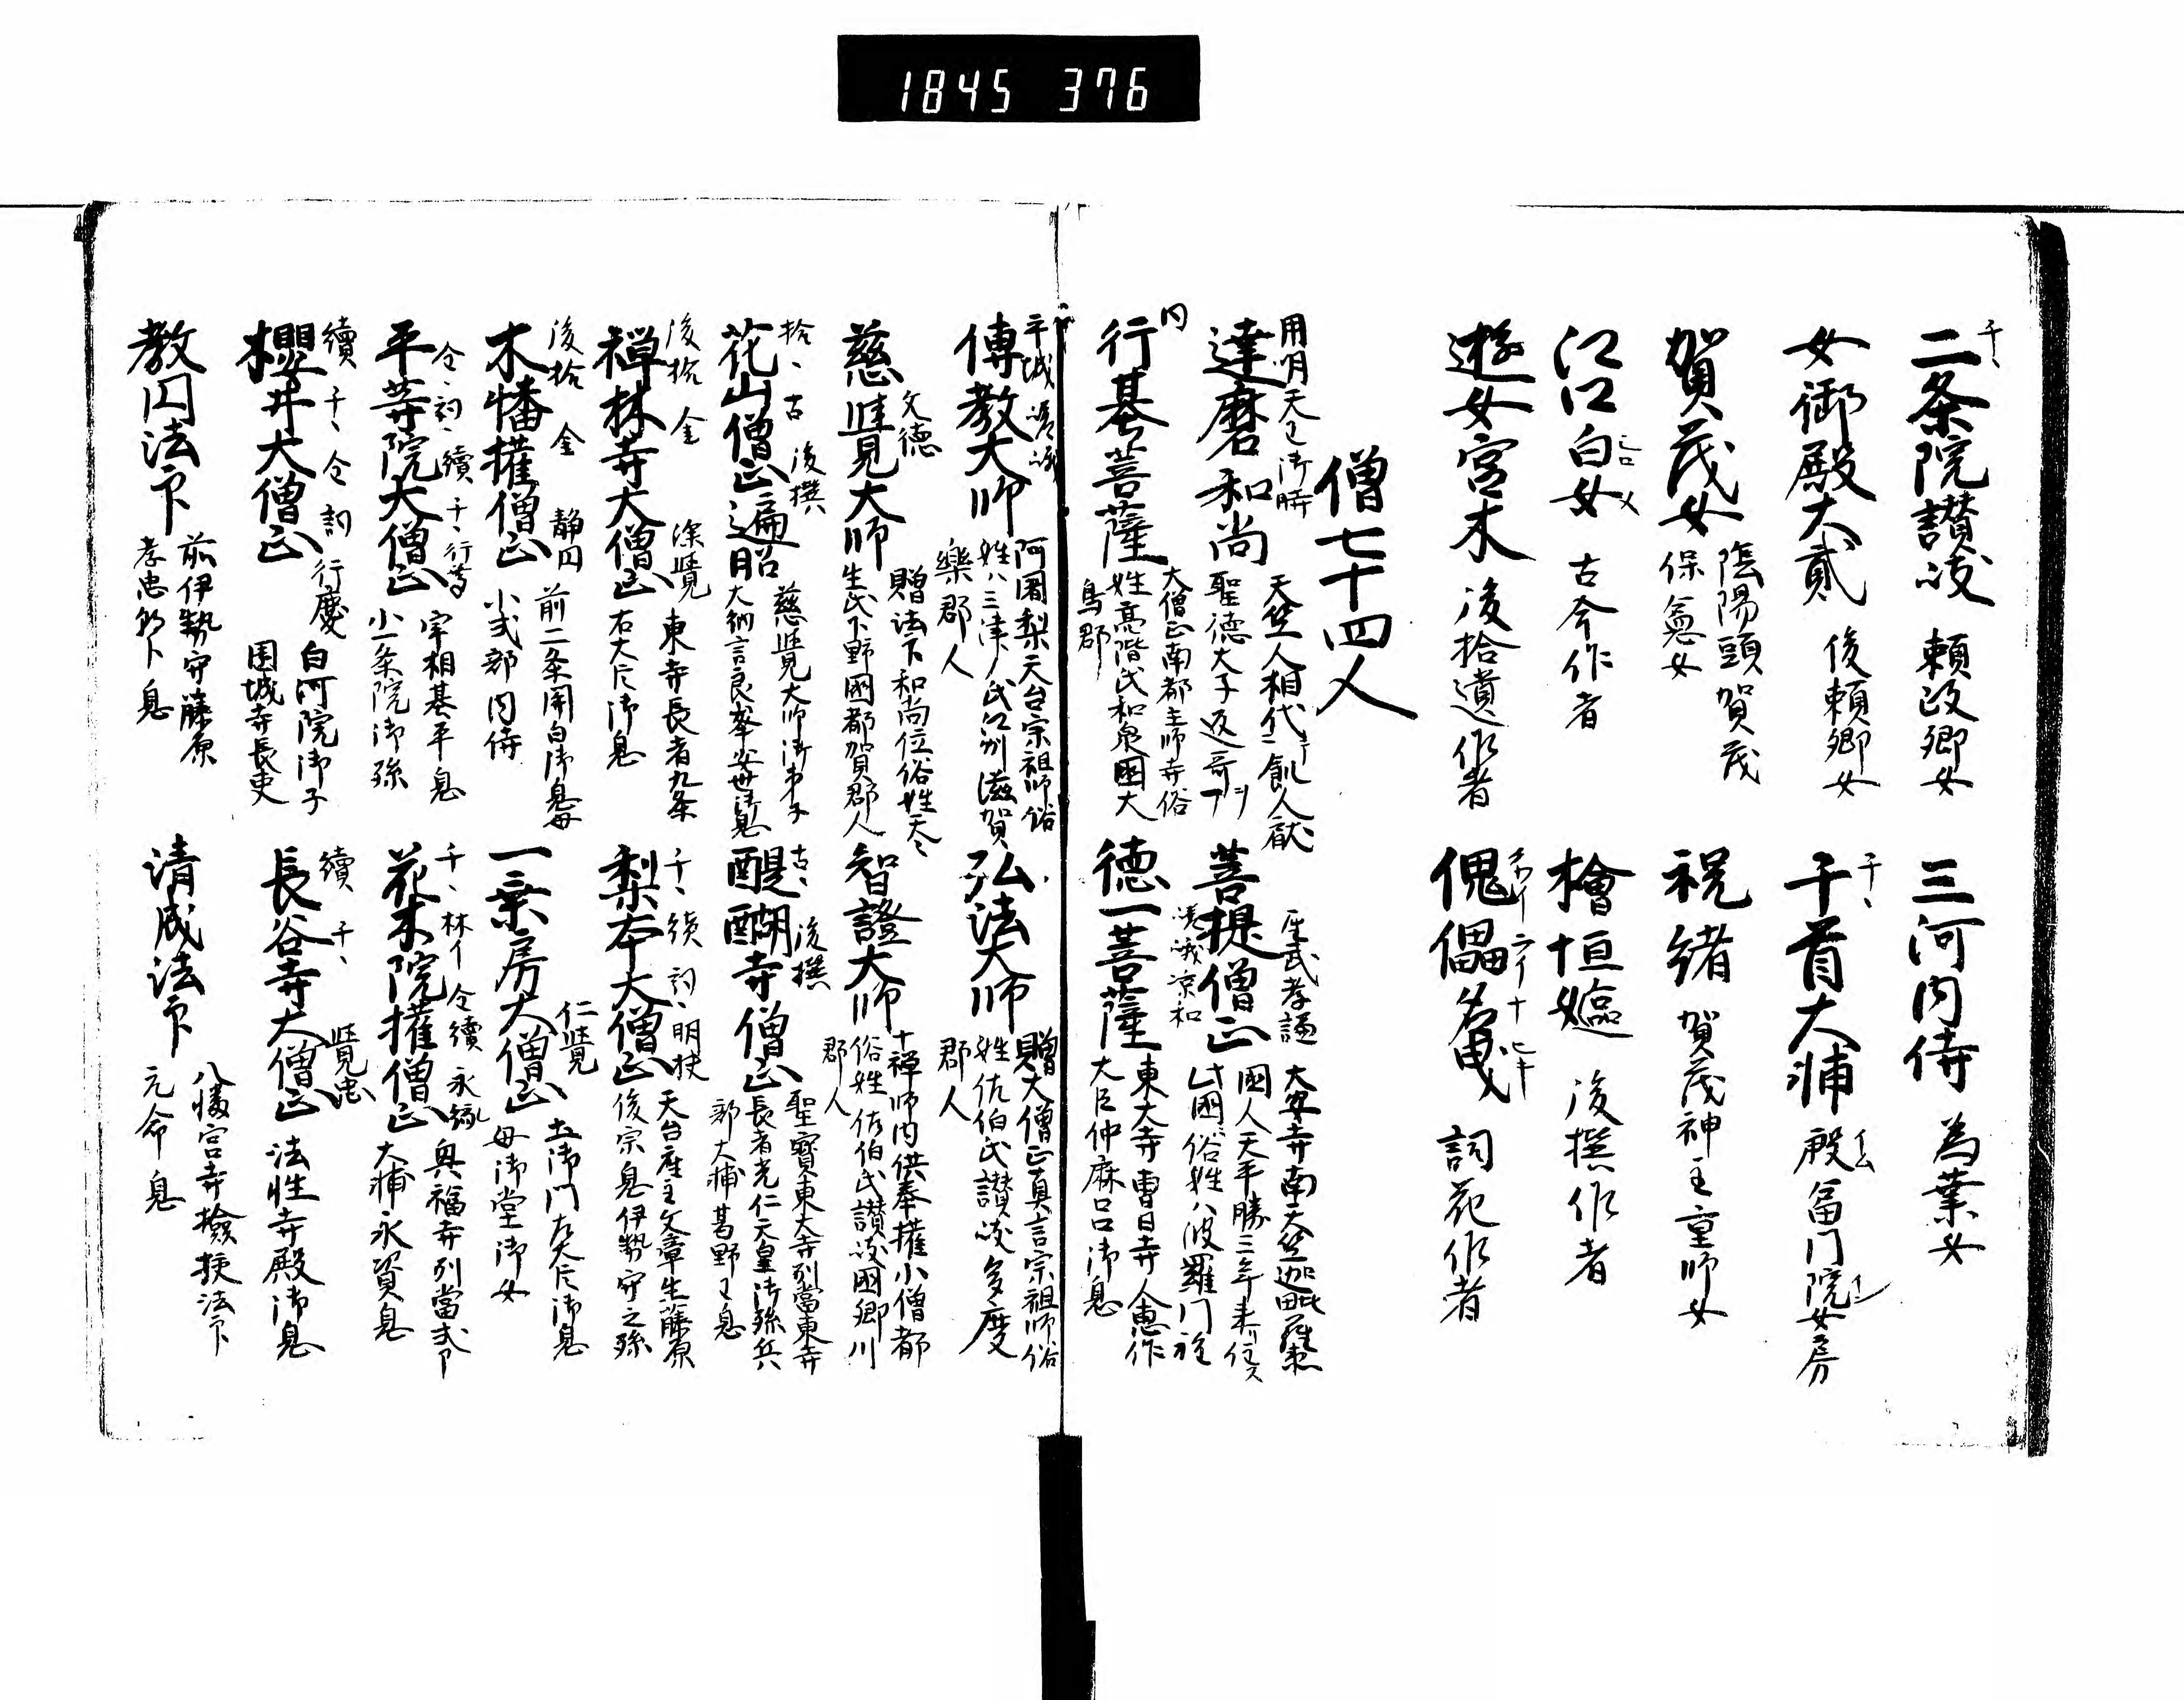 1845 376
千、
二条院讃岐 頼政卿女
三河内侍 為業女
女御殿大貳 俊頼卿女
千、
千首大輔 殿富門院女房
賀茂女 陰陽頭賀茂
保憲女
祝緒 賀茂神主重師女
江口白女 古今作者
檜垣嫗 後撰作者
遊女宮木 後拾遺作者
傀儡名曳 詞花作者
僧七十四人
用明天王御時
達磨和尚 天竺人相代
飢人献
聖徳太子返哥
菩提僧正 大安寺南天竺迦毗羅
國人天平勝
年来住
此國俗姓八波羅門
行基菩薩 大僧正南都
寺俗
姓高階氏和泉國大
鳥郡
嵯峨淳和
徳一菩薩 東大寺
大臣仲麻呂御息
平城 嵯峨
傳教大師 阿闍梨天台宗祖師俗
姓八三津氏江州滋賀
郡人
弘法大師 贈大僧正真言宗祖師俗
姓佐伯氏讃岐多度
郡人
文徳
慈覺大師 贈法下和尚位俗姓
生氏下野國都賀郡人
智證大師 十禅師内供奉権小僧都
俗姓佐伯氏讃岐國
郡人
拾、古 後撰
花山僧正遍昭 慈覺大師御弟子
大納言良峯安世御息
古、後撰
醍醐寺僧正 聖寳東大寺別當東寺
長者光仁天皇御孫兵
部大輔葛野王息
後拾 金
禅林寺大僧正 深覺 東寺長者九条
右大臣御息
千、続 詞、
梨本大僧正 明快 天台座主文章生藤原
俊宗息伊勢守之孫
後拾 金
木幡権僧正 静円 前二条関白御息母
小式部内侍
一乗房大僧正 仁覺 土御門右大臣御息
母御堂御女
金、詞、續 千、
平等院大僧正 行尊 宰相基平息
小一条院御孫
千、
花林院権僧正 永縁 興福寺別當式部
大輔永資息
續 千、金 詞
櫻井大僧正 行慶 白河院御子
園城寺長吏
續 千、
長谷寺大僧正 覺忠 法性寺殿御息
教円法印 前伊勢守藤原
孝忠朝臣息
清成法印 八幡宮寺撿挍法印
元命息